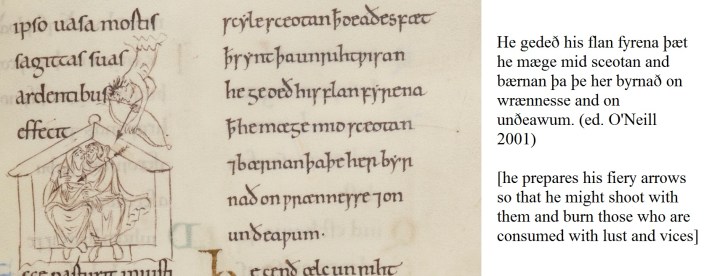 ipso uasa mortis
sagittas suas
ardentibus
effecit
ecce parturit iniusti
scyle sceotan ꝥ deaðes fæt
ꝥ synt þa unrihtƿisan
he gedeð his flan fyrena
ꝥ he mæge mid sceotan
⁊ bærnan þa þe her byr
nað on ƿrænnesse ⁊ on
unðeaƿum·
he cenð ælc unriht
He gedeð his flan fyrena þæt
he mæge mid sceotan and
bærnan þa þe her byrnað on
wrænnesse and on
unðeawum. (ed. O'Neill
2001)
[he prepares his fiery arrows
so that he might shoot with
them and burn those who are
consumed with lust and vices]